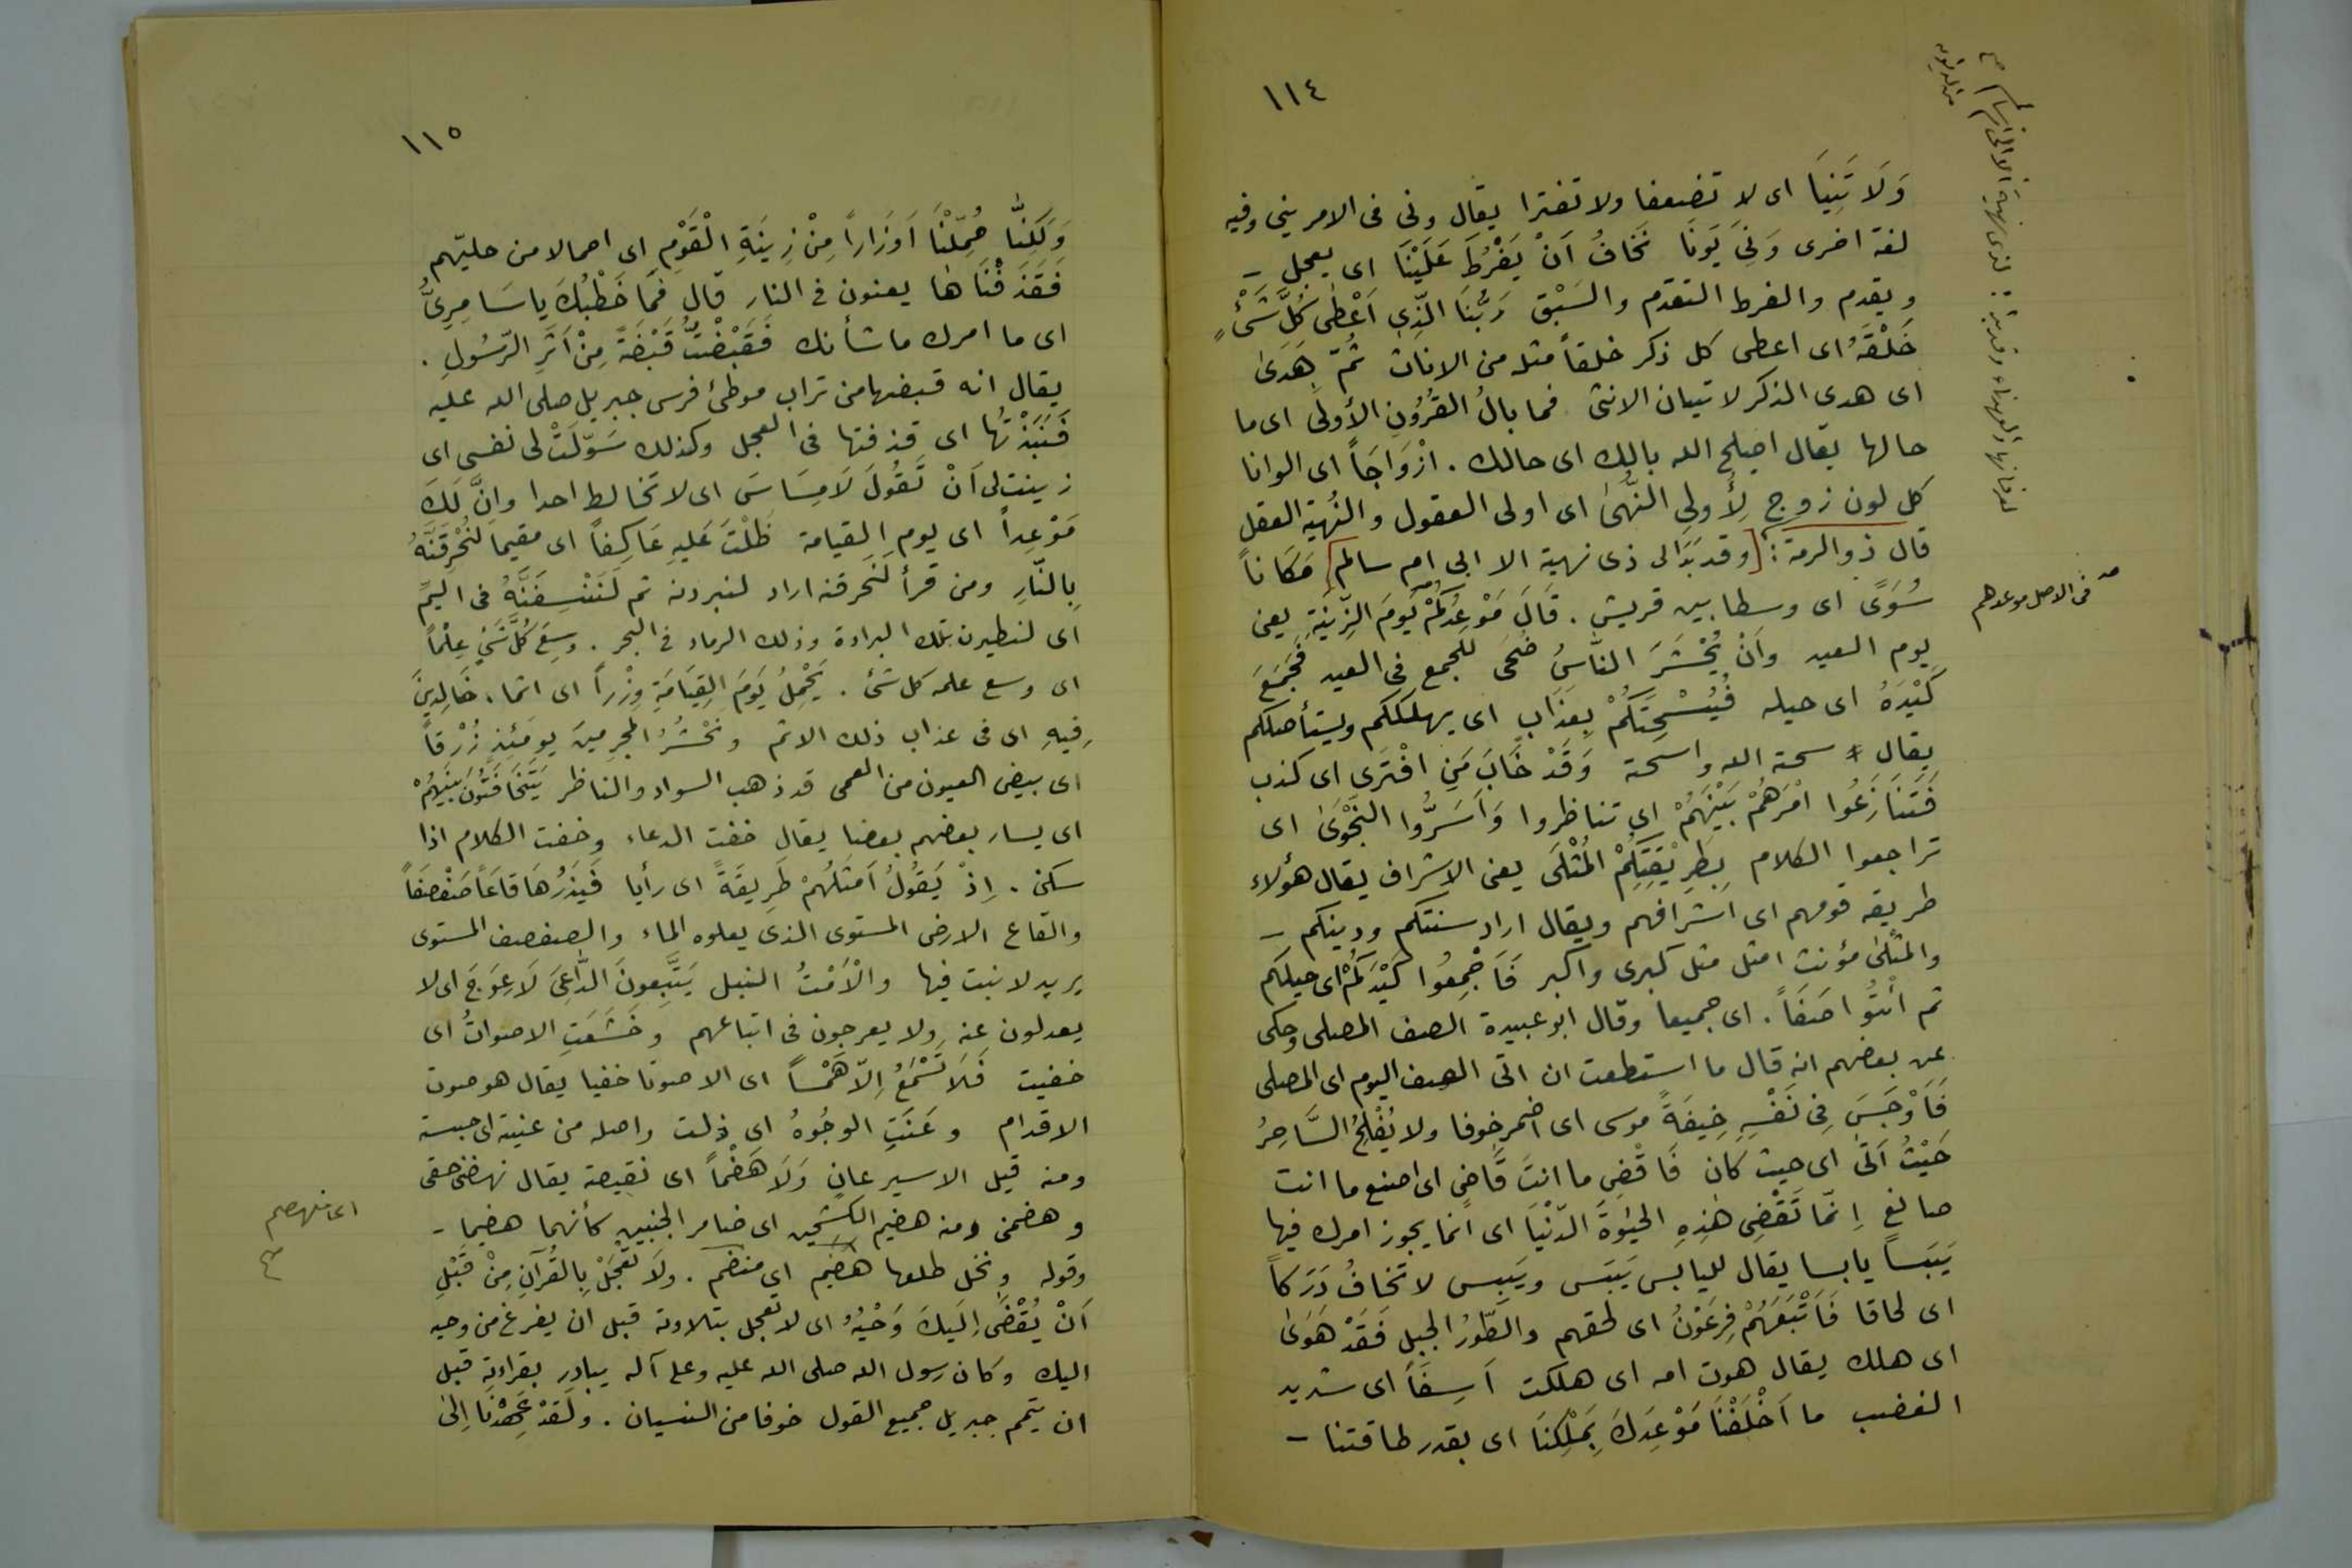 ١١٤
وَلَا تَنِيَا اى لا تضعفا ولا تفترا يقال ونى فى الامر ينى وفيه
لغة اخرى وَنِىَ يَونَا نَخَافُ اَنْ يَفْرُطَ عَلَيْنَا اى يعجل -
ويقدم والفرط التقدم والسَبْق رَبُّنَا الَّذِى اَعْطٰى كُلَّ شَىْءٍ
خَلْقَهُ اى اعطى كل ذكر خلقاً مثله من الاناث ثُمَّ هَدىٰ
اى هدى الذكر لاتيان الانثى فما بالُ القُرُونِ الأولىٰ اى ما
حالها يقال اصلح الله بالك اى حالك . ازْوَاجَاً اى الوانا
كل لون زوج لِأُولِى النُّهىٰ اى اولى العقول والنُهية العقل
قال ذوالرمة : [وقد بَدَا لى ذى نهية الا الى ام سالم] مَكَاناً
سُوَىً اى وسطا بين قريش . قَالَ مَوْعِدُكُمْ يَومَ الزِّينَةِ يعنى
يوم العيد وَاَنْ يُحْشَرَ النَّاسُ ضُحَى للجمع فى العيد فَجَمَعَ
كَيْدَهُ اى حيله فَيُسْحِتَكُمْ بِعَذَابٍ اى يهلككم ويستأصلكم
يقال سحته الله واسحته وَقَدْ خَابَ مَنِ افْتَرَى اى كذب
فَتَنَازَعُوا امْرَهُمْ بَيْنَهُمْ اى تناظروا وَاَسَرُّوا النَّجْوَىٰ اى
تراجعوا الكلام بِطَرِيْقَتِكُمْ المُثْلَى يعنى الاشراف يقال هؤلاء
طريقة قومهم اى اشرافهم ويقال اراد سنتكم ودينكم -
والمثلىٰ مؤنث امثل مثل كبرى واكبر فَاَجْمِعُوا كَيْدَكُمْ اى حيلكم
ثم ائتُوا صَفَاً . اى جميعا وقال ابو عبيدة الصف المصلى وحكى
عن بعضهم انه قال ما استطعت ان اتى الصف اليوم اى المصلى
فَاَوْجَسَ فِى نَفْسِهِ خِيفَةً موسى اى اضمر خوفا ولا يُفْلِحُ السَّاحِرُ
حَيْثُ اَتَىٰ اى حيث كان فَاقْضِ ما انتَ قَاضٍ اى اصنع ما انت
صانع اِنَّمَا تَقْضِى هٰذِهِ الحَيٰوةَ الدُّنْيَا اى انما يجوز امرك فيها
يَبَسَاً يابسا يقال لليابس يَبَس ويَبِس لا تخافُ دَرَكاً
اى لحاقا فَاَتْبَعَهُمْ فِرعَوْنُ اى لحقهم والطّورُ الجبل فَقَدْ هَوَىٰ
اى هلك يقال هوت امه اى هلكت اَسِفَاً اى شديد
الغضب ما اَخْلَفْنَا مَوْعِدَكَ بِمَلْكِنَا اى بقدر طاقتنا -
فى الاصل موعدهم
١١٥
وَلَكِنَّا حُمِّلْنَا اَوزَاراً مِنْ زِينَةِ الْقَوْمِ اى احمالا من حليّهم
فَقَذَفْنَاها يعنون فى النار قال فَمَا خَطْبُكَ يا سَامِرِىُّ
اى ما امرك ما شأنك فَقَبَضْتُ قَبْضَةً مِنْ اَثَرِ الرّسُولِ .
يقال انه قبضها من تراب موطئ فرس جبريل صلى الله عليه
فَنَبَذْتُهَا اى قذفتها فى العجل وكذلك سَوّلَتْ لى نفسى اى
زينت لى اَنْ تَقُولَ لَا مِسَاسَ اى لا تخالط احدا وانَّ لَكَ
مَوْعِداً اى يوم القيامة ظَلْتَ عَلَيهِ عَاكِفَاً اى مقيما لَنُحْرِقَنَّهُ
بِالنّارِ ومن قرأ لَنَحرقنه اراد لنبردنه ثم لَنَنْسِفَنَّهُ فى اليمِّ
اى لنطيرن تلك البرادة وذلك الرماد فى البحر . وسِعَ كُلَّ شَىْءٍ عِلْماً
اى وسع علمه كل شئ . يَحْمِلُ يَومَ القِيَامَةِ وِزْراً اى اثما . خَالِدِينَ
فِيهِ اى فى عذاب ذلك الاثم ونَحْشُرُ المجرِمِينَ يومَئِذٍ زُرْقاً
اى بيض العيون من العمى قد ذهب السواد والناظر يَتَخَافَتُونَ بَيْنَهُمْ
اى يسار بعضهم بعضا يقال خفت الدعاء وخفت الكلام اذا
سكن . اِذْ يَقُولُ اَمْثَلُهُمْ طَرِيقَةً اى رأيا فَيَذَرُهَا قَاعَاً صَفْصَفَاً
والقاع الارض المستوى الذى يعلوه الماء والصفصف المستوى
يريد لا نبت فيها والْاَمْتُ النبل يَتَّبِعونَ الدَّاعِىَ لَا عِوَجَ اى لا
يعدلون عنه ولا يعرجون فى اتباعهم وخَشَعَتِ الاصواتُ اى
خفيت فَلَا تَسْمَعُ اِلّا هَمْسَاً اى الا صوتا خفيا يقال هو صوت
الاقدام وعَنَتِ الوجُوهُ اى ذلت واصله من عنيته اى حبسته
ومنه قيل الاسير عانٍ وَلَا هَضْماً اى نقيصة يقال تهضنى حقى
وهضمنى ومنه هضيم الكشحين اى ضامر الجنبين كأنهما هضيما -
وقوله ونخل طلعها هضيم اى منهضم . ولَا تَعْجَلْ بِالقُرآنِ مِنْ قَبْلِ
اَنْ يُقْضَى اِلَيكَ وَحْيُهُ اى لا تعجل بتلاوته قبل ان يفرغ من وحيه
اليك وكان رسول الله صلى الله عليه وعلى آله يبادر بقراءته قبل
ان يتمم جبريل جميع القول خوفا من النسيان . ولَقَدْ عَهِدْنَا اِلىٰ
اى منهضم